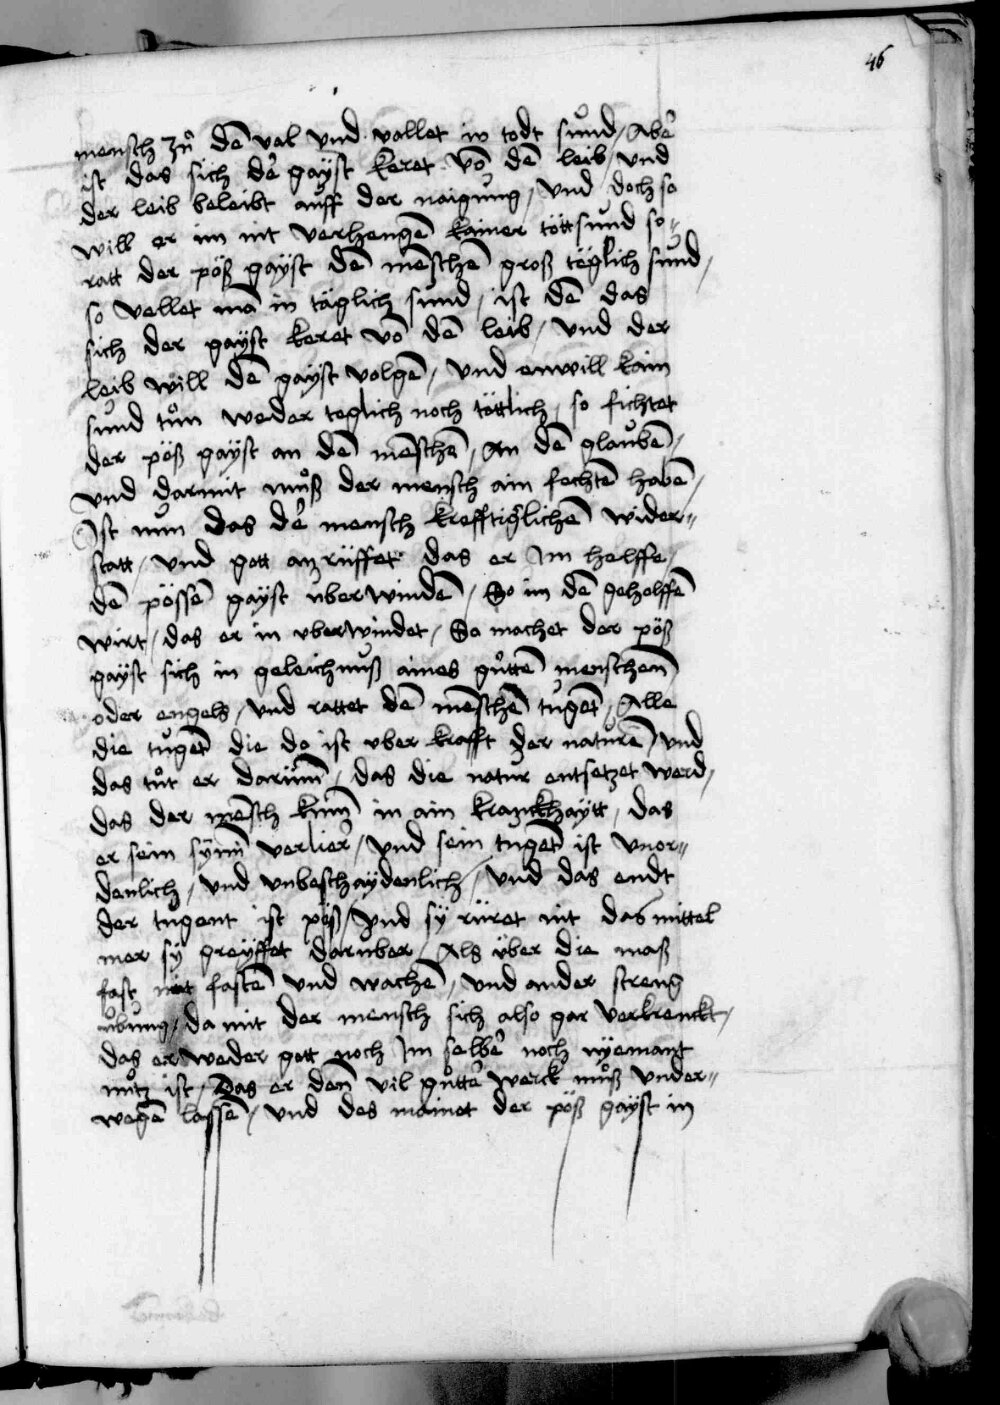 46
mensch zů dē val vnd vallet in todt sünd / Abē
ist das sich dē gayst keret vō dē leib / vnd
der leib beleibt auff der naigung / vnd doch so
will er im nit verhengē kainer töttsund so=
ratt der pöß gayst dē mēschē groß täglich sund /
so vellet mā in täglich sünd / ist dē das
sich der gayst keret vō dē leib / vnd der
leib will dē gayst volgē / vnd enwill kain
sund tůn weder teglich noch töttlich / so fichtet
der pöß gayst an dē mēschē / An dē glaubē /
vnd darmit můß der mensch ain fechtē habē /
Ist nun das dē mensch krefftiglichē wider=
statt / vnd gott an rüffet das er Im helffe /
dē pössē gayst uberwindē / So im dē geholffē
wirt / das er in vberwindet / So machet der pöß
gayst sich in geleichnuß aines gůttē menschenn
oder engels / vnd rattet dē mēschē tugēt / Alle
die tugēt die do ist vber krafft der naturē / vnd
das tůt er darümb / das die natur entsetzet werd /
das der mēsch kūm in ain kranckhaytt / das
er sein synn verlier / vnd sein tugēt ist vnor=
denlich / vnd vnbeschaydenlich / vnd das endt
der tugent ist pöß / vnd sy rüret nit das mittel
mer sy greyffet daruber / Als über die maß
fast mit fastē vnd wachē / vnd ander streng
übung / da mit der mensch sich also gar verkrenckt /
das er weder gott noch Im selbē noch nyemant
nütz ist / Das er dēn vil gůttē werck můß vnder=
wegē lassē / vnd des mainet der pöß gayst in